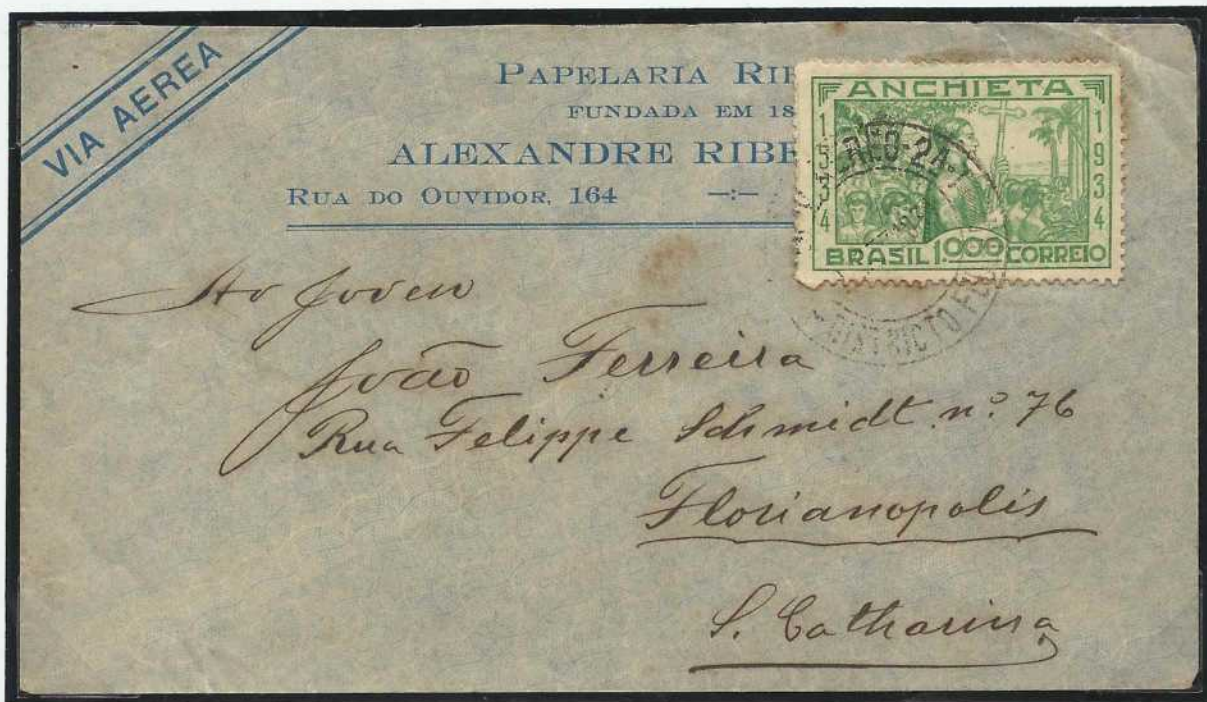 VIA AEREA
PAPELARIA RIB
FUNDADA EM 18
ALEXANDRE RIBE
RUA DO OUVIDOR, 164 —:—
ANCHIETA
1534
1934
BRASIL 1.000 CORREIO
AEREO-2A
DISTRICTO FE
Ao joven
João Ferreira
Rua Felippe Schmidt nº 76
Florianopolis
S. Catharina